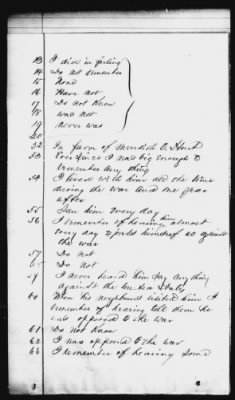 13 I died in feeling
14 Do not remember
15 None
16 Have not
17 Do not Know
18 was not
19 never was
20
52 In favor of Meredith O. Hunt
53 Ever since I was big enough to
remember any thing
54 I lived with him all the time
during the war and one year
after
55 Saw him every day
56 I remember of hearing him, almost
every day express himself as against
the war
57 Do not
58 Do not
59 I never heard him say any thing
against the United States
60 When his neighbors visited him I
remember of hearing tell them he
was opposed to the war
61 Do not know
62 I was opposed to the war
63 I remember of hearing some